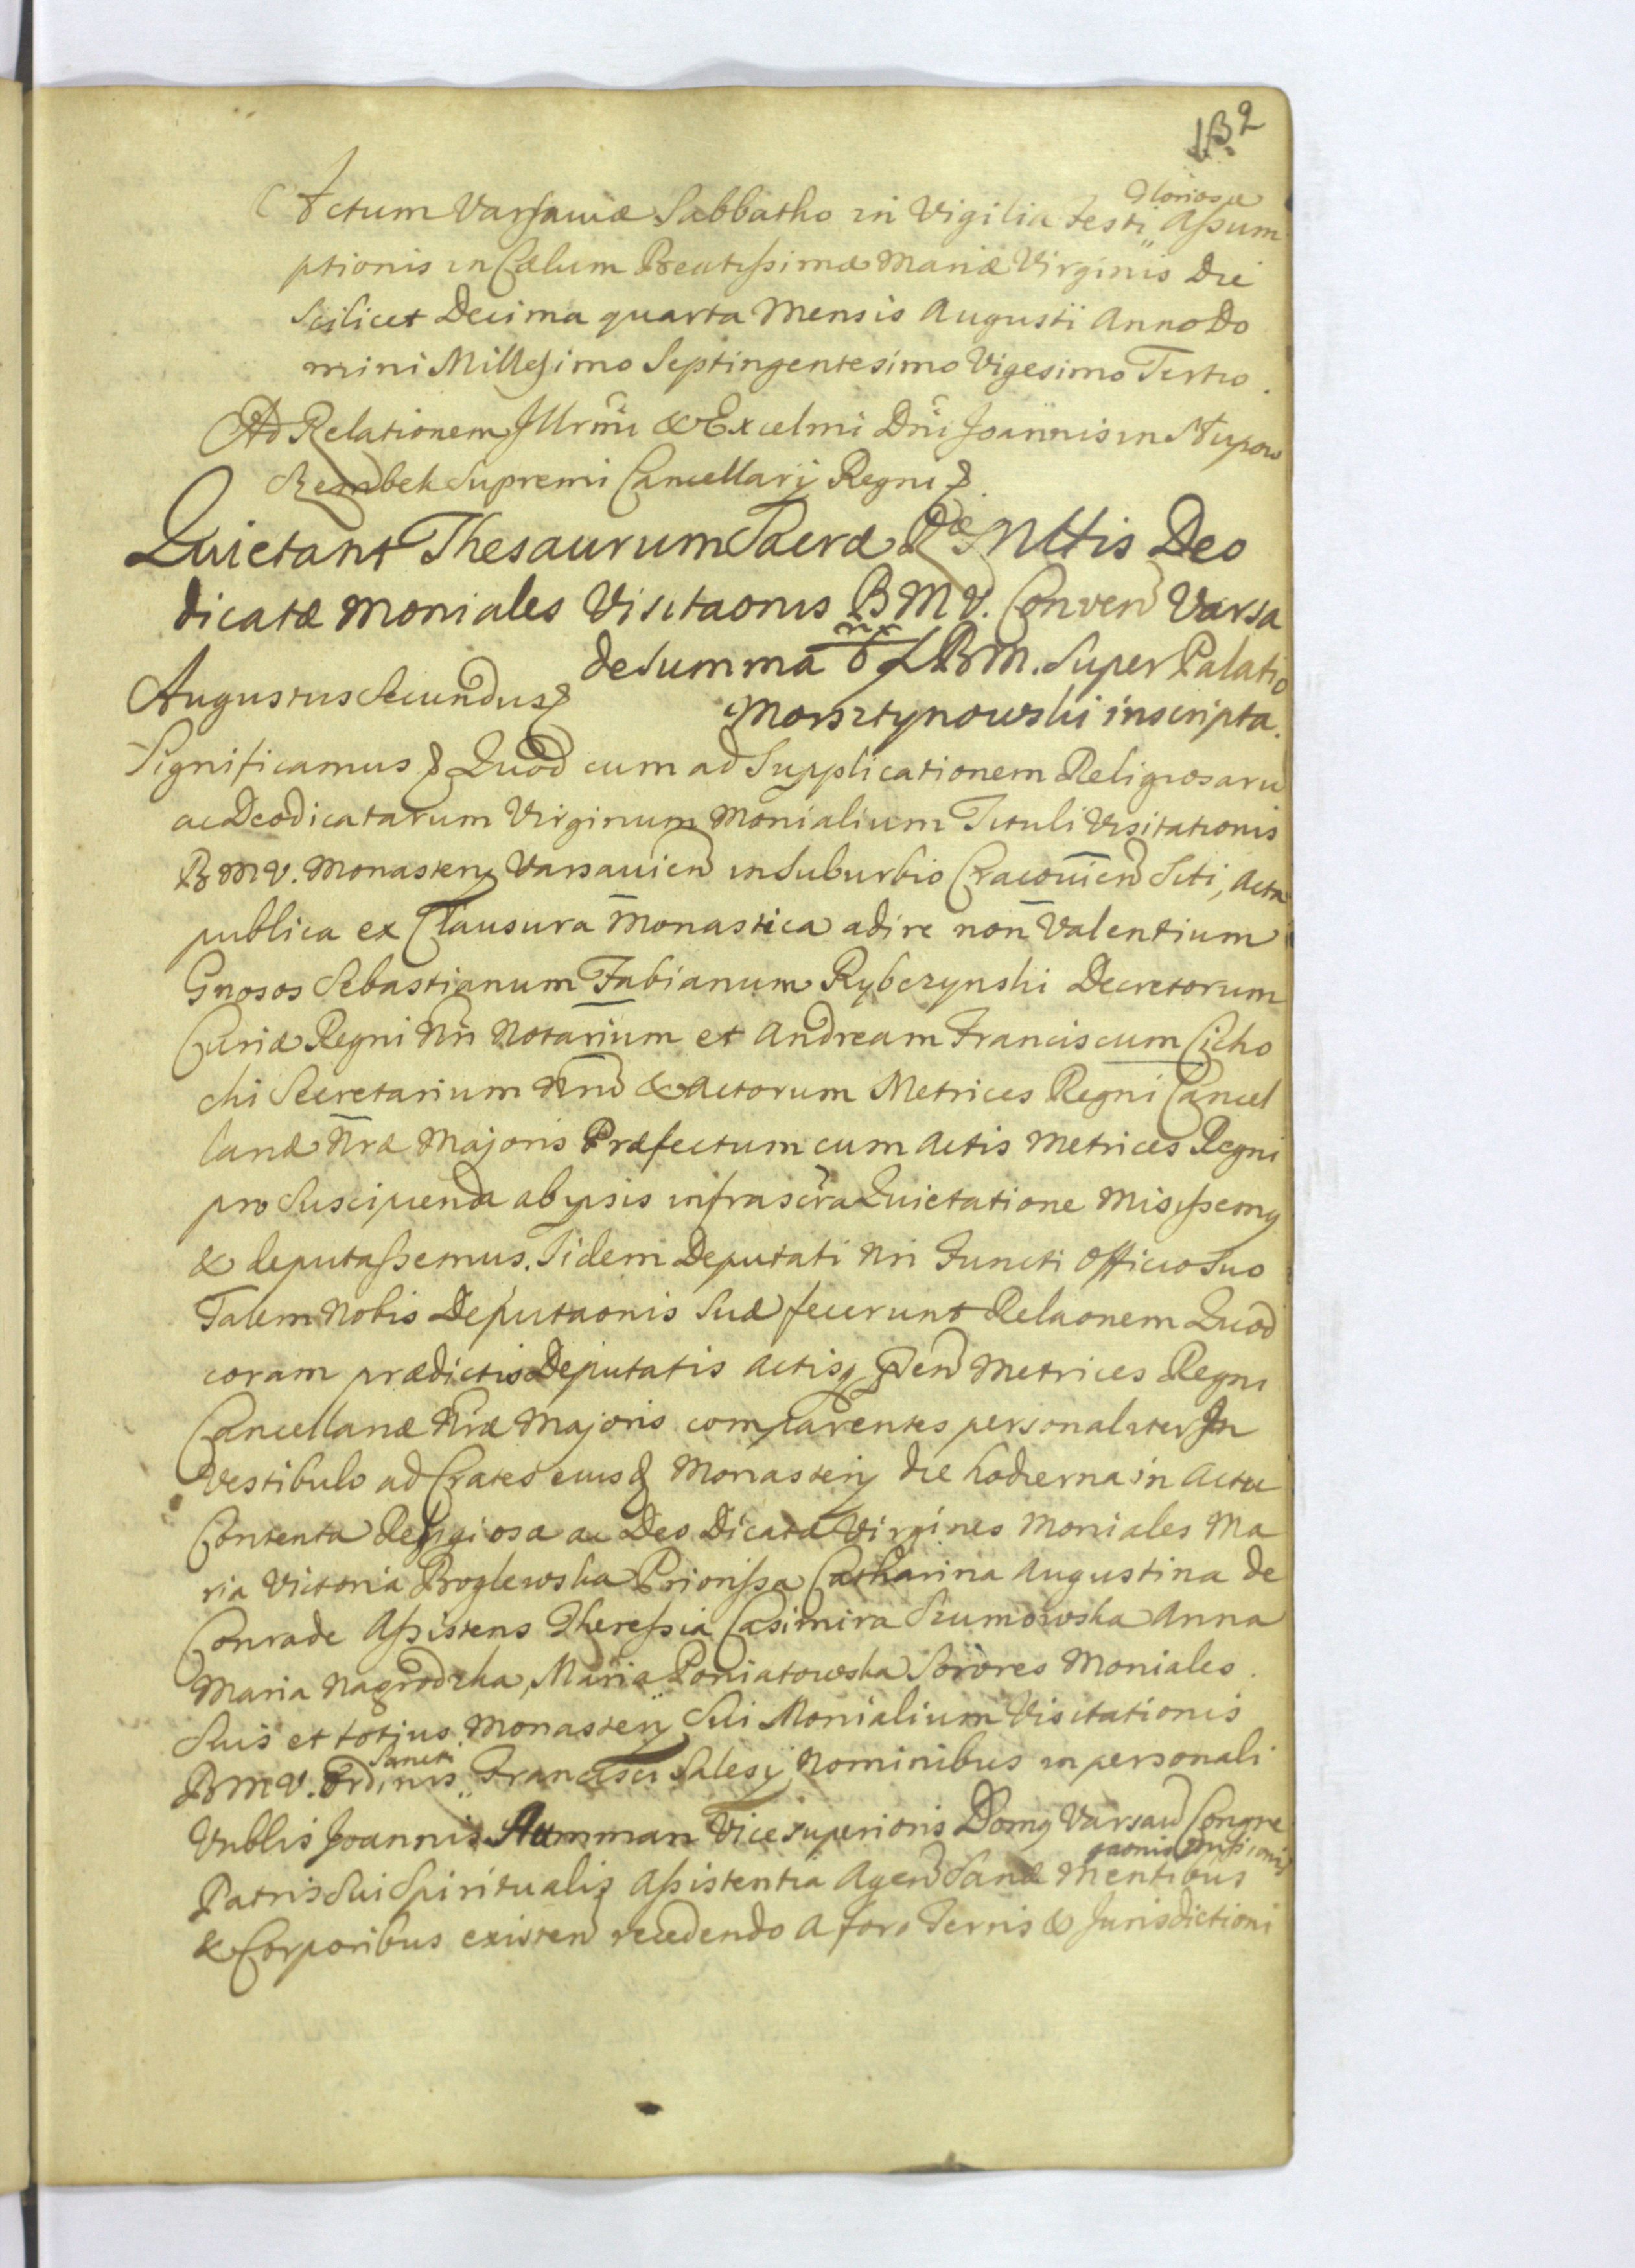 132
Actum Varsaviæ Sabbatho in Vigilia Festi Gloriosæ Assum
ptionis in Cælum Beatissimæ Mariæ Virginis Die
Scilicet Decima quarta Mensis Augusti Anno Do
mini Millesimo Septingentesimo Vigesimo Tertio.
Ad Relationem Illrmi & Excelmi Dni Joannis in Słupow
Szembek Supremi Cancellarij Regni &.
Quietant Thesaurum Sacræ Ræ Mttis Deo
dicatæ Moniales Visitaonis B M V. Conven Varsa
de Summa BM. Super Palatio
Augustus Secundus &
Morsztynowski inscripta.
Significamus & Quod cum ad Supplicationem Religiosaru
ac Deodicatarum Virginum Monialium Tituli Visitationis
B M V. Monasterij Varsavien in Suburbio Cracovien Siti, Acta
publica ex Clausura Monastica adire non Valentium
Gnosos Sebastianum Fabianum Rybczynski Decretorum
Curiæ Regni Nri Notarium et Andream Franciscum Cicho
cki Secretarium Nrm & Actorum Metrices Regni Cancel
lariæ Nræ Majoris Præfectum cum Actis Metrices Regni
pro Suscipienda ab ipsis infrascra Quietatione Misissemq
& deputassemus. Iidem Deputati Nri Functi Officio Suo
Talem Nobis Deputaonis Suæ fecerunt Relaonem Quod
coram prædictis Deputatis Actisq pden Metrices Regni
Cancellariæ Nræ Majoris comparentes personaliter In
Vestibulo ad Crates eiusd Monasterij die hodierna in Actu
Contenta Religiosæ ac Deo Dicatæ Virgines Moniales Ma
ria Victoria Broglewska Priorissa Catharina Augustina de
Conrade Assistens Theressia Casimira Szumowska Anna
Maria Nagrodzka, Maria Poniatowska Sorores Moniales.
Suis et totius Monasterij Sui Monialium Visitationis
B M V. Ordinis Sancti Francisci Salesij Nominibus in personali
Vnblis Joannis Aumman Vice superioris Domq Varsav Congre
gaonis Missionis
Patris Sui Spiritualis Assistentia Agen Sanæ Mentibus
& Corporibus existen recedendo a foro Terris & Jurisdictioni